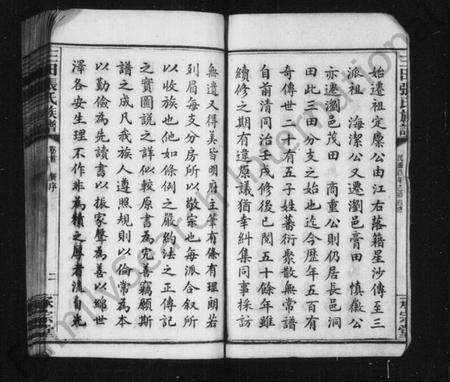 三田張氏族譜
始遷祖定廉公由江右落籍星沙傳至三
派祖 海潔公又遷瀏邑膏田 慎徽公
亦遷瀏邑茂田 商重公則仍居長邑洞
田此三田分支之始也迄今歷年五百有
奇傳世二十有五子姓蕃衍聚散無常譜
自前清同治壬戌修後已閱五十餘年雖
續修之期有違原議猶幸糾集同事採訪
無遺又得美皆明府主筆有條有理朗若
列眉每支分房所以敬宗也每派合叙所
以收族也他如條例之嚴纘法之正傳記
之實圖説之詳似較原書為完善竊願斯
譜之成凡我族人遵照規則以倫常為本
以勤儉為先讀書以振家聲為善以綿世
澤各安生理不作非為績之厚者流自光
三田張氏族譜
卷首 新序
二
承宗堂